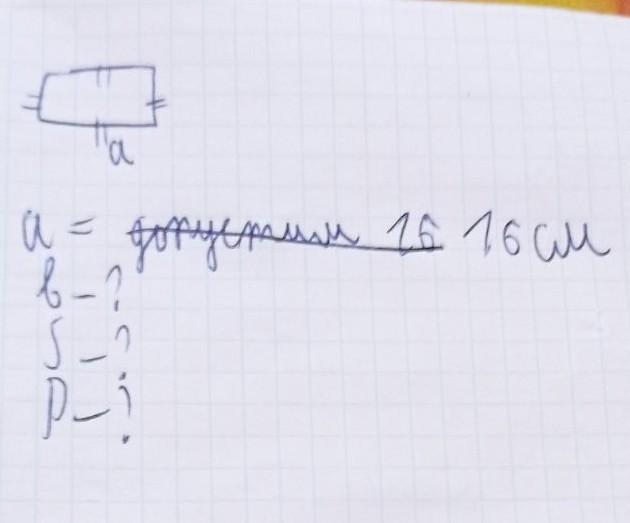 a
a = допустим 16 16 см
b - ?
S - ?
P - ?